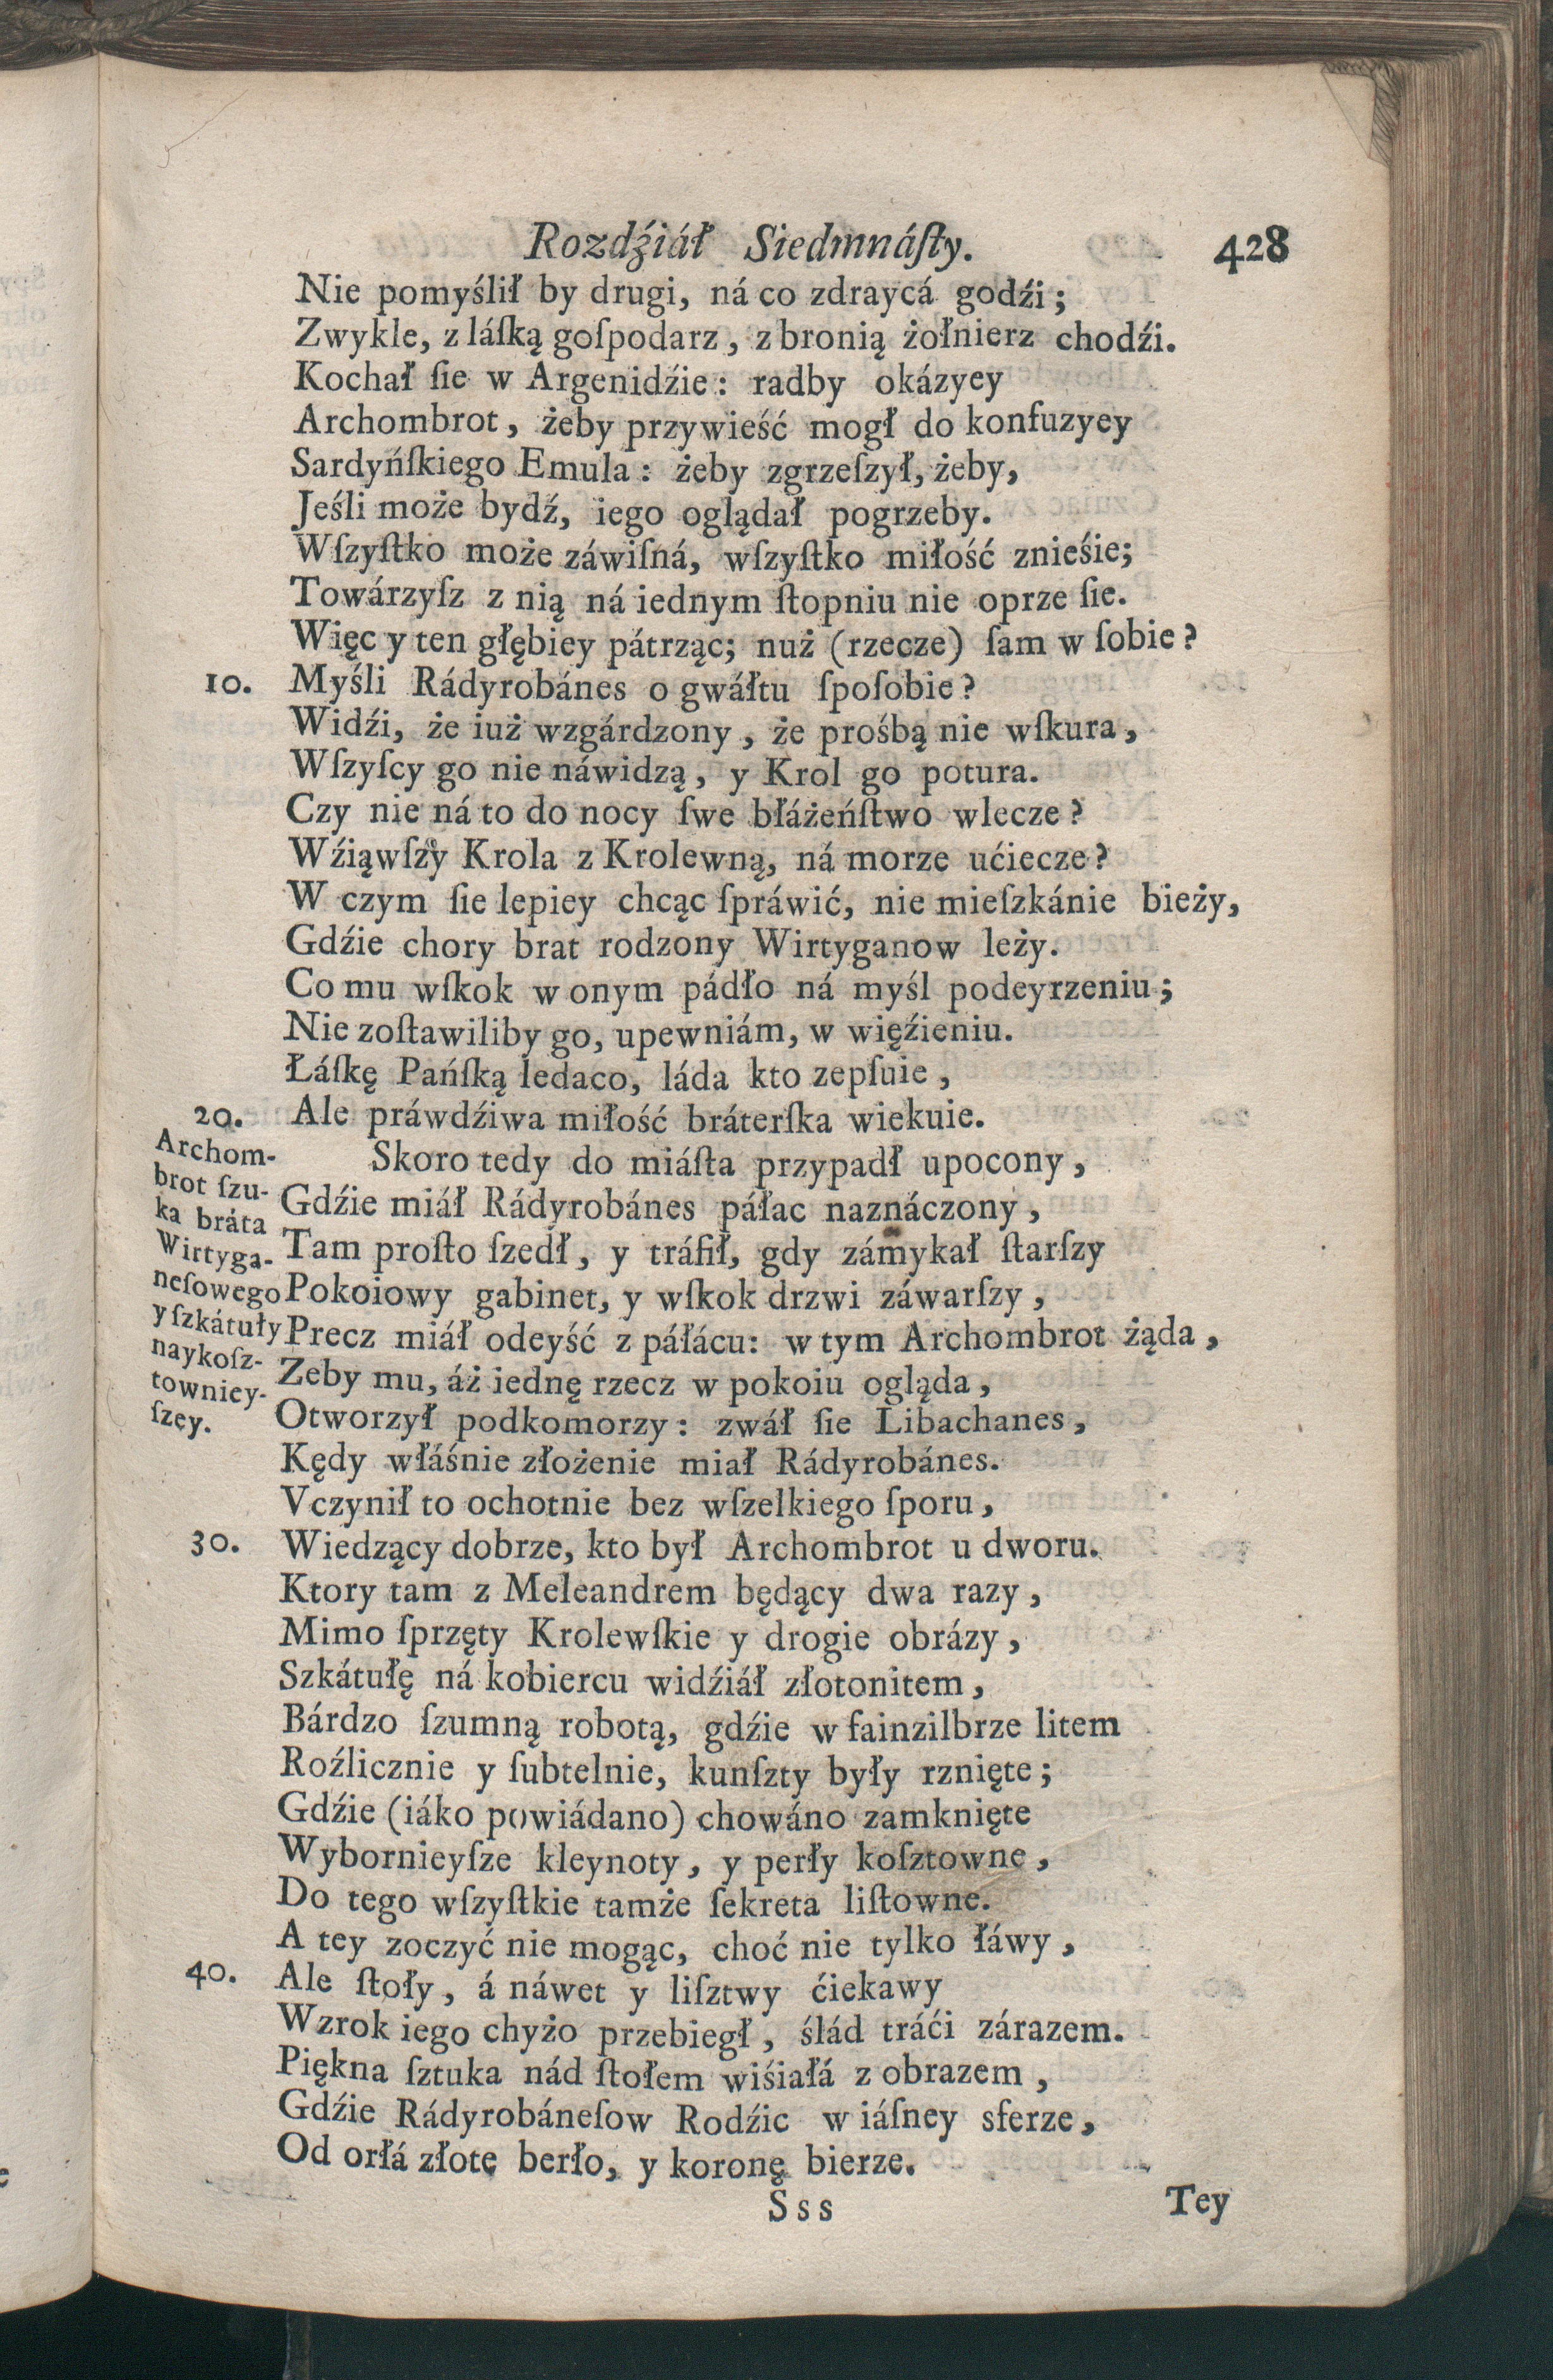 Rozdźiáł Siedmnáſty. 428
Nie pomyślił by drugi, ná co zdraycá godźi;
Zwykle, z láſką goſpodarz, z bronią żołnierz chodźi.
Kochał ſie w Argenidźie: radby okázyey
Archombrot, żeby przywieść mogł do konfuzyey
Sardyńſkiego Emula: żeby zgrzeſzył, żeby,
Jeśli może bydź, iego oglądał pogrzeby.
Wſzyſtko może záwiſná, wſzyſtko miłość znieśie;
Towárzyſz z nią ná iednym ſtopniu nie oprze ſie.
Więc y ten głębiey pátrząc; nuż (rzecze) ſam w ſobie?
10. Myśli Rádyrobánes o gwáłtu ſpoſobie?
Widźi, że iuż wzgárdzony, że prośbą nie wſkura,
Wſzyſcy go nie náwidzą, y Krol go potura.
Czy nie ná to do nocy ſwe błáżeńſtwo wlecze?
Wźiąwſzy Krola z Krolewną, ná morze ućiecze?
W czym ſie lepiey chcąc ſpráwić, nie mieſzkánie bieży,
Gdźie chory brat rodzony Wirtyganow leży.
Co mu wſkok w onym pádło ná myśl podeyrzeniu;
Nie zoſtawiliby go, upewniám, w więźieniu.
Łáſkę Pańſką ledaco, láda kto zepſuie,
20. Ale práwdźiwa miłość bráterſka wiekuie.
Archom-
brot ſzu-
ka bráta
Wirtyga-
neſowego
y ſzkátuły
naykoſz-
towniey-
ſzey.
Skoro tedy do miáſta przypadł upocony,
Gdźie miáł Rádyrobánes páłac naznáczony,
Tam proſto ſzedł, y tráfił, gdy zámykał ſtarſzy
Pokoiowy gabinet, y wſkok drzwi záwarſzy,
Precz miáł odeyść z páłácu: w tym Archombrot żąda,
Zeby mu, áż iednę rzecz w pokoiu ogląda,
Otworzył podkomorzy: zwáł ſie Libachanes,
Kędy włáśnie złożenie miał Rádyrobánes.
Vczynił to ochotnie bez wſzelkiego ſporu,
30. Wiedzący dobrze, kto był Archombrot u dworu.
Ktory tam z Meleandrem będący dwa razy,
Mimo ſprzęty Krolewſkie y drogie obrázy,
Szkátułę ná kobiercu widźiáł złotonitem,
Bárdzo ſzumną robotą, gdźie w fainzilbrze litem
Roźlicznie y ſubtelnie, kunſzty były rznięte;
Gdźie (iáko powiádano) chowáno zamknięte
Wybornieyſze kleynoty, y perły koſztowne,
Do tego wſzyſtkie tamże ſekreta liſtowne.
A tey zoczyć nie mogąc, choć nie tylko łáwy,
40. Ale ſtoły, á náwet y liſztwy ćiekawy
Wzrok iego chyżo przebiegł, ślád tráći zárazem.
Piękna ſztuka nád ſtołem wiśiałá z obrazem,
Gdźie Rádyrobáneſow Rodźic w iáſney sferze,
Od orłá złote berło, y koronę bierze.
Sss Tey